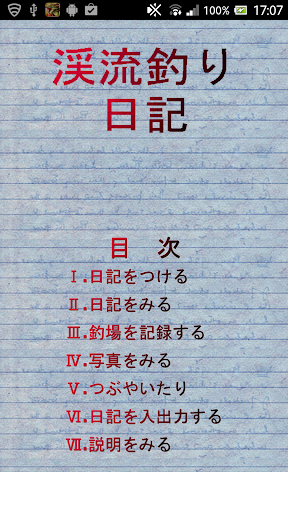 100% 17:07
渓流釣り
日記
目 次
Ⅰ.日記をつける
Ⅱ.日記をみる
Ⅲ.釣場を記録する
Ⅳ.写真をみる
Ⅴ.つぶやいたり
Ⅵ.日記を入出力する
Ⅶ.説明をみる